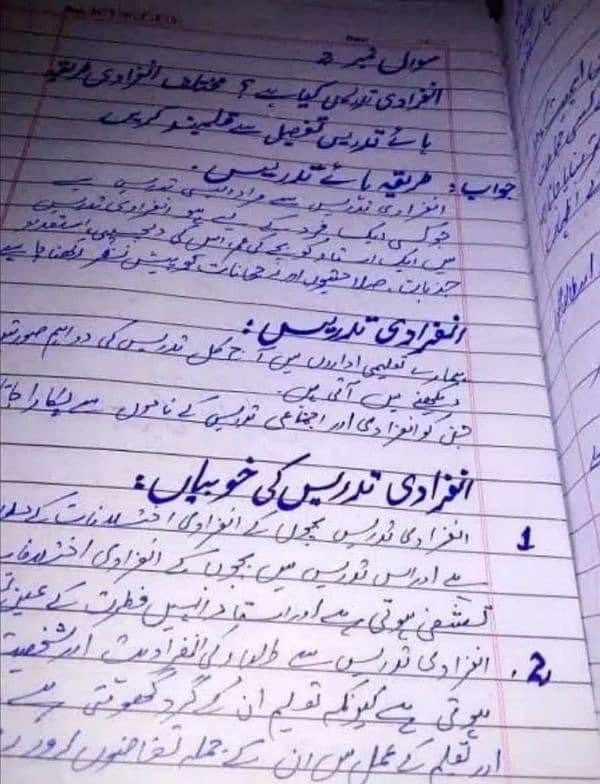 سوال نمبر 2
انفرادی تدریس کیا ہے؟ مختلف انفرادی طریقہ
ہائے تدریس تفصیل سے قلمبند کریں
جواب: طریقہ ہائے تدریس.
انفرادی تدریس سے مراد ایسی تدریس ہے
جو کسی ایک فرد کے لیے ہو انفرادی تدریس
میں ایک استاد کو بچے کی عمر اس کی دلچسپی استعداد
جذبات، صلاحیتوں اور رجحانات کو پیش نظر رکھنا چاہیے
انفرادی تدریس:
ہمارے تعلیمی اداروں میں آج کل تدریس کی دو اہم صورتیں
دیکھنے میں آتی ہیں.
جن کو انفرادی اور اجتماعی تدریس کے ناموں سے پکارا جاتا
انفرادی تدریس کی خوبیاں:
1 انفرادی تدریس بچوں کے انفرادی اختلافات کے
ہے اور اس تدریس میں بچوں کے انفرادی اختلافات
تشفی ہوتی ہے اور استاد انہیں فطرت کے عین
2. انفرادی تدریس سے طلباء کی انفرادیت اور شخصیت
ہوتی ہے کیونکہ تعلیم ان کے گرد گھومتی ہے
اور تعلم کے عمل میں ان کے جملہ تقاضوں